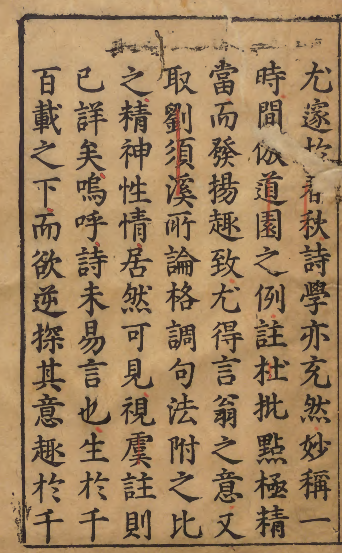 尤邃於春秋詩學亦充然妙稱一
時間倣道園之例註杜批點極精
當而發揚趣致尤得言翁之意又
取劉須溪所論格調句法附之比
之精神性情居然可見視虞註則
已詳矣嗚呼詩未易言也生於千
百載之下而欲逆探其意趣於千